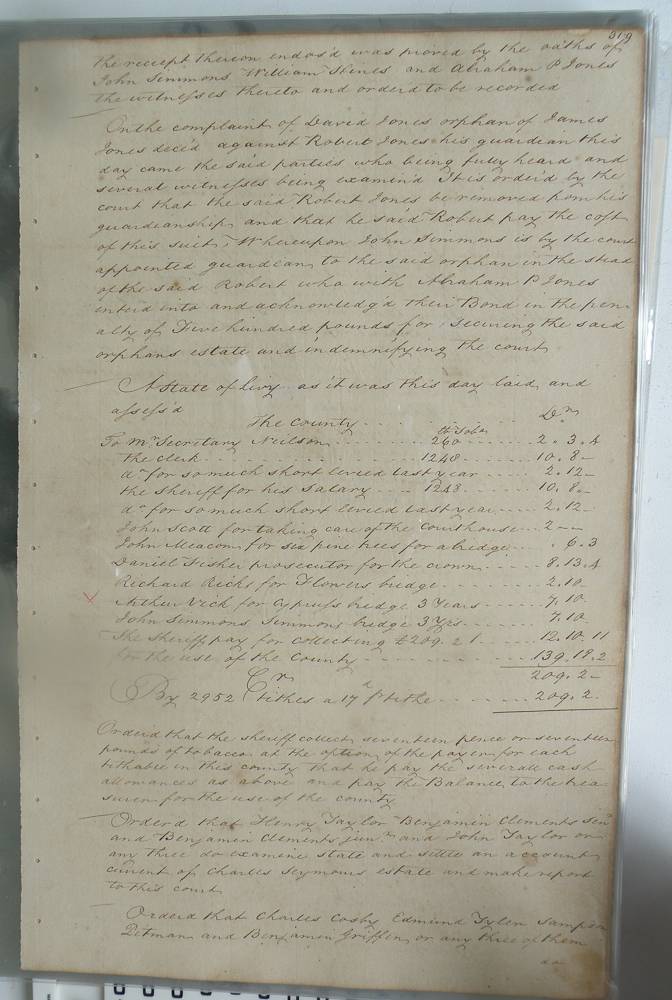 319
the receipt thereon endos'd was proved by the oaths of
John Simmons William Hines and Abraham P Jones
the witnesses thereto and orderd to be recorded
On the complaint of David Jones orphan of James
Jones deced against Robert Jones his guardian this
day came the said parties who being fully heard and
several witnesses being examin'd It is order'd by the
court that the said Robert Jones be removed from his
guardianship and that he said Robert pay the cost
of this suit, Whereupon John Simmons is by the court
appointed guardian to the said orphan in the stead
of the said Robert who with Abraham P Jones
enterd into and acknowledg'd their Bond in the pen-
alty of Five hundred pounds for securing the said
orphans estate and indemnifying the court
A State of Levy as it was this day laid and
assess'd
The County Dr
tb Tobo
To Mr Secretary Neilson 260 2. 3. 4
the clerk 1248 10. 8 -
do for so much short levied last year 2. 12 -
the sheriff for his salary 1248 10. 8. -
do for so much short levied last year 2. 12 -
John Scott for taking care of the courthouse 2 - -
John Meacom for six pine trees for a bridge . 6. 3
Daniel Fisher prosecutor for the crown 8. 13. 4
Richard Ricks for Flowers bridge 2. 10
Arthur Vick for Cypruss bridge 3 Years 7. 10
John Simmons Simmons bridge 3 yrs 7. 10
The Sheriff pay for collecting £209. 2 1 12. 10. 11
for the use of the County 139. 18. 2
209. 2 -
Cr
By 2952 tithes a 17d pr tithe 209. 2.
Orderd that the sheriff collect seventeen pence or seventeen
pounds of tobacco at the option of the payer for each
tithable in this county that he pay the severall cash
allowances as above and pay the Balance to the trea
surer for the use of the county
Orderd that Henry Taylor Benjamin Clements Senr
and Benjamin Clements junr and John Taylor or
any three do examine state and settle an account
current of Charles Seymours estate and make report
to this court
Orderd that Charles Cosby Edmund Tylen Sampson
Pitman and Benjamin Griffin or any three of them
do